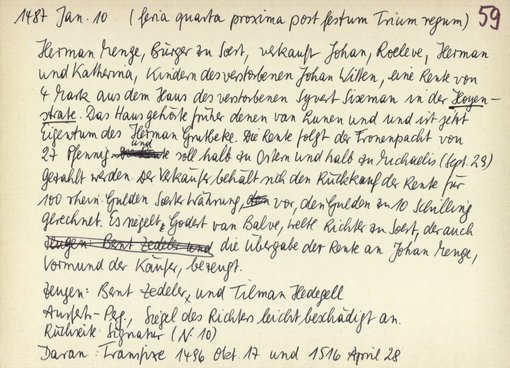 1487 Jan. 10 (feria quarta proxima post festum Trium regum) 59
Herman Menge, Bürger zu Soest, verkauft Johan, Roeleve, Herman
und Katherina, Kindern des verstorbenen Johan Witten, eine Rente von
4 Mark aus dem Haus des verstorbenen Syvert Siseman in der Hoyen-
strate. Das Haus gehörte früher denen van Lunen und und ist jetzt
Eigentum des Herman Grutbeke. Die Rente folgt der Fronenpacht von
27 Pfennig und soll halb zu Ostern und halb zu Michaelis (Sept. 29)
gezahlt werden. Der Verkäufer behält sich den Rückkauf der Rente für
100 rhein. Gulden Soester Währung, vor, den Gulden zu 10 Schilling
gerechnet. Es siegelt, Godert van Balve, weltl. Richter zu Soest, der auch
Zeugen: Bent Zedeler und die Übergabe der Rente an Johan Menge,
Vormund der Käufer, bezeugt.
Zeugen: Bent Zedeler, und Tilman Hedegell
Ausfert.-Perg., Siegel des Richters leicht beschädigt an.
Rückseite: Signatur (N 10)
Daran: Transfixe 1496 Okt. 17 und 1516 April 28